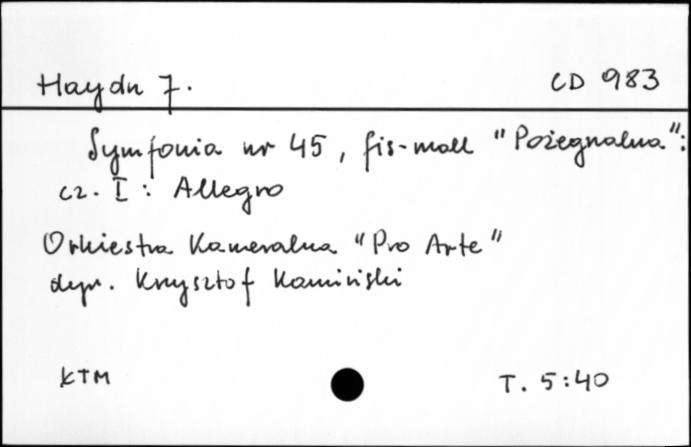 Haydn J. CD 983
Symfonia nr 45, fis-moll "Pożegnalna":
cz. I: Allegro
Orkiestra Kameralna "Pro Arte"
dyr. Krzysztof Kamiński
KTM T. 5:40